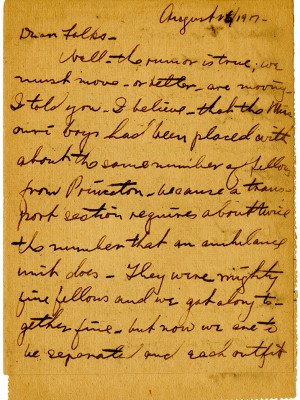 August 1917-
Dear Folks-
Well- the rumor is true; we
must move- or better- are moving-
I told you- I believe- that the Miss
ouri boys had been placed with
about the same number of fellows
from Princeton- because a trans-
port section requires about twice
the number that an ambulance
unit does- They were mighty
fine fellows and we got along to-
gether fine- but now we are to
be separate and each outfit